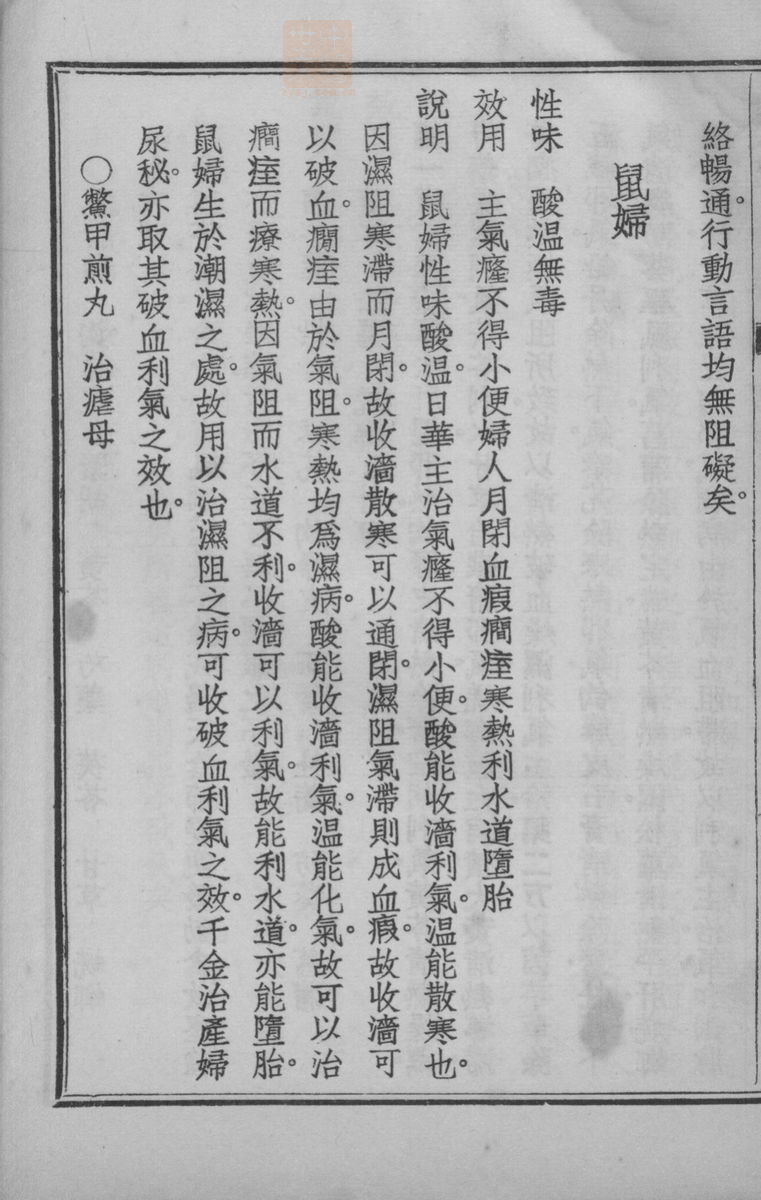 絡暢通。行動言語均無阻礙矣。
鼠婦
性味　酸温無毒
效用　主氣癃不得小便婦人月閉血瘕癎痓寒熱利水道墮胎
說明　鼠婦性味酸温。日華主治氣癃不得小便。酸能收濇利氣。温能散寒也。
因濕阻寒滯而月閉。故收濇散寒可以通閉。濕阻氣滯則成血瘕。故收濇可
以破血。癎痓由於氣阻。寒熱均爲濕病。酸能收濇利氣。温能化氣。故可以治
癎痓而療寒熱。因氣阻而水道不利。收濇可以利氣。故能利水道。亦能墮胎。
鼠婦生於潮濕之處。故用以治濕阻之病。可收破血利氣之效。千金治產婦
尿秘。亦取其破血利氣之效也。
〇鱉甲煎丸　治瘧母